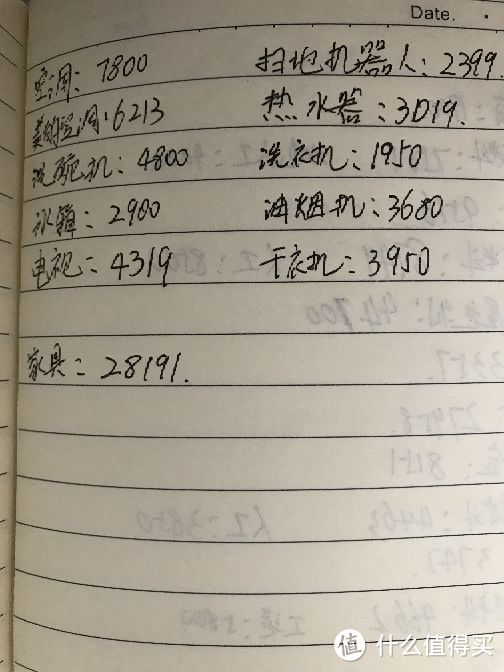 Date.
空调: 7800 扫地机器人: 2399
美的空调: 6213 热水器: 3019.
洗碗机: 4800 洗衣机: 1950
冰箱: 2900 油烟机: 3680
电视: 4319 干衣机: 3950
家具: 28191.
值 什么值得买